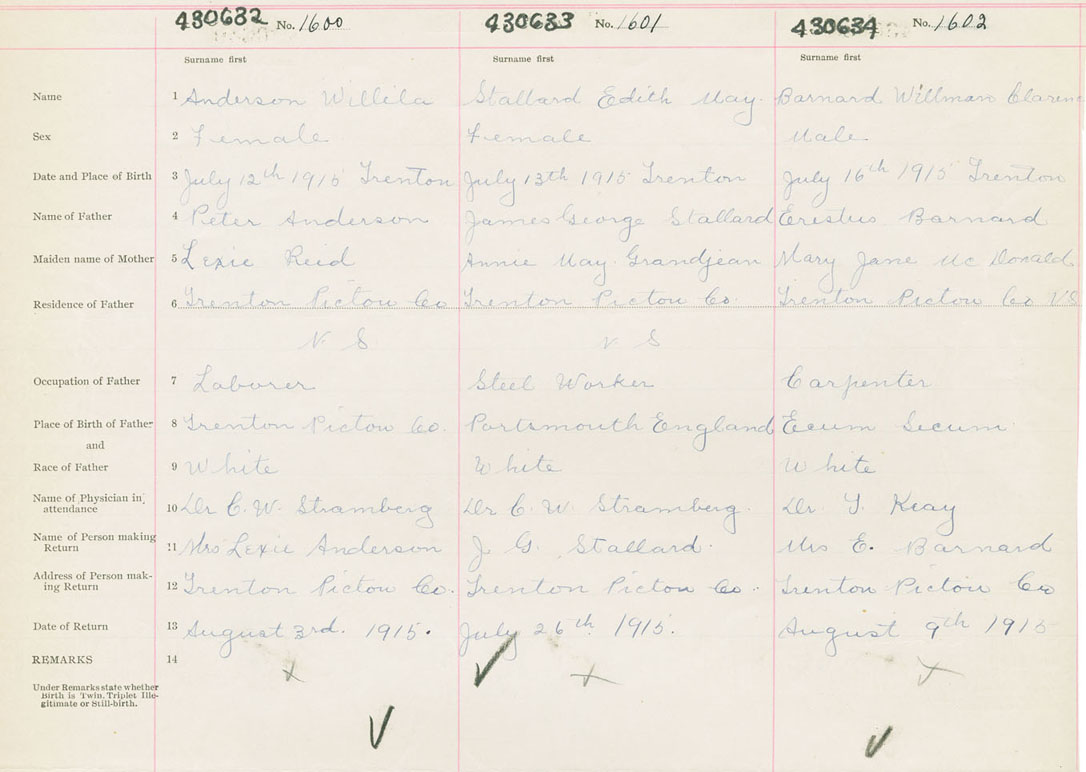 430632 No. 1600 430633 No. 1601 430634 No. 1602
Surname first Surname first Surname first
Name 1 Anderson Willila Stallard Edith May. Barnard Willman Claren
Sex 2 Female Female Male
Date and Place of Birth 3 July 12th 1915 Trenton July 13th 1915 Trenton July 16th 1915 Trenton
Name of Father 4 Peter Anderson James George Stallard Erestus Barnard
Maiden name of Mother 5 Lexie Reid Annie May Grandjean Mary Jane Mc Donald
Residence of Father 6 Trenton Pictou Co Trenton Pictou Co. Trenton Pictou Co NS
N S N S
Occupation of Father 7 Laborer Steel Worker Carpenter
Place of Birth of Father 8 Trenton Pictou Co. Portsmouth England Ecum Secum
and
Race of Father 9 White White White
Name of Physician in attendance 10 Dr C. W. Stramberg Dr C. W. Stramberg. Dr. Keay
Name of Person making Return 11 Mrs Lexie Anderson J G. Stallard. Mrs E. Barnard
Address of Person mak-ing Return 12 Trenton Pictou Co. Trenton Pictou Co. Trenton Pictou Co
Date of Return 13 August 3rd. 1915. July 26th 1915. August 9th 1915
REMARKS 14
Under Remarks state whether
Birth is Twin, Triplet Ille-
gitimate or Still-birth.